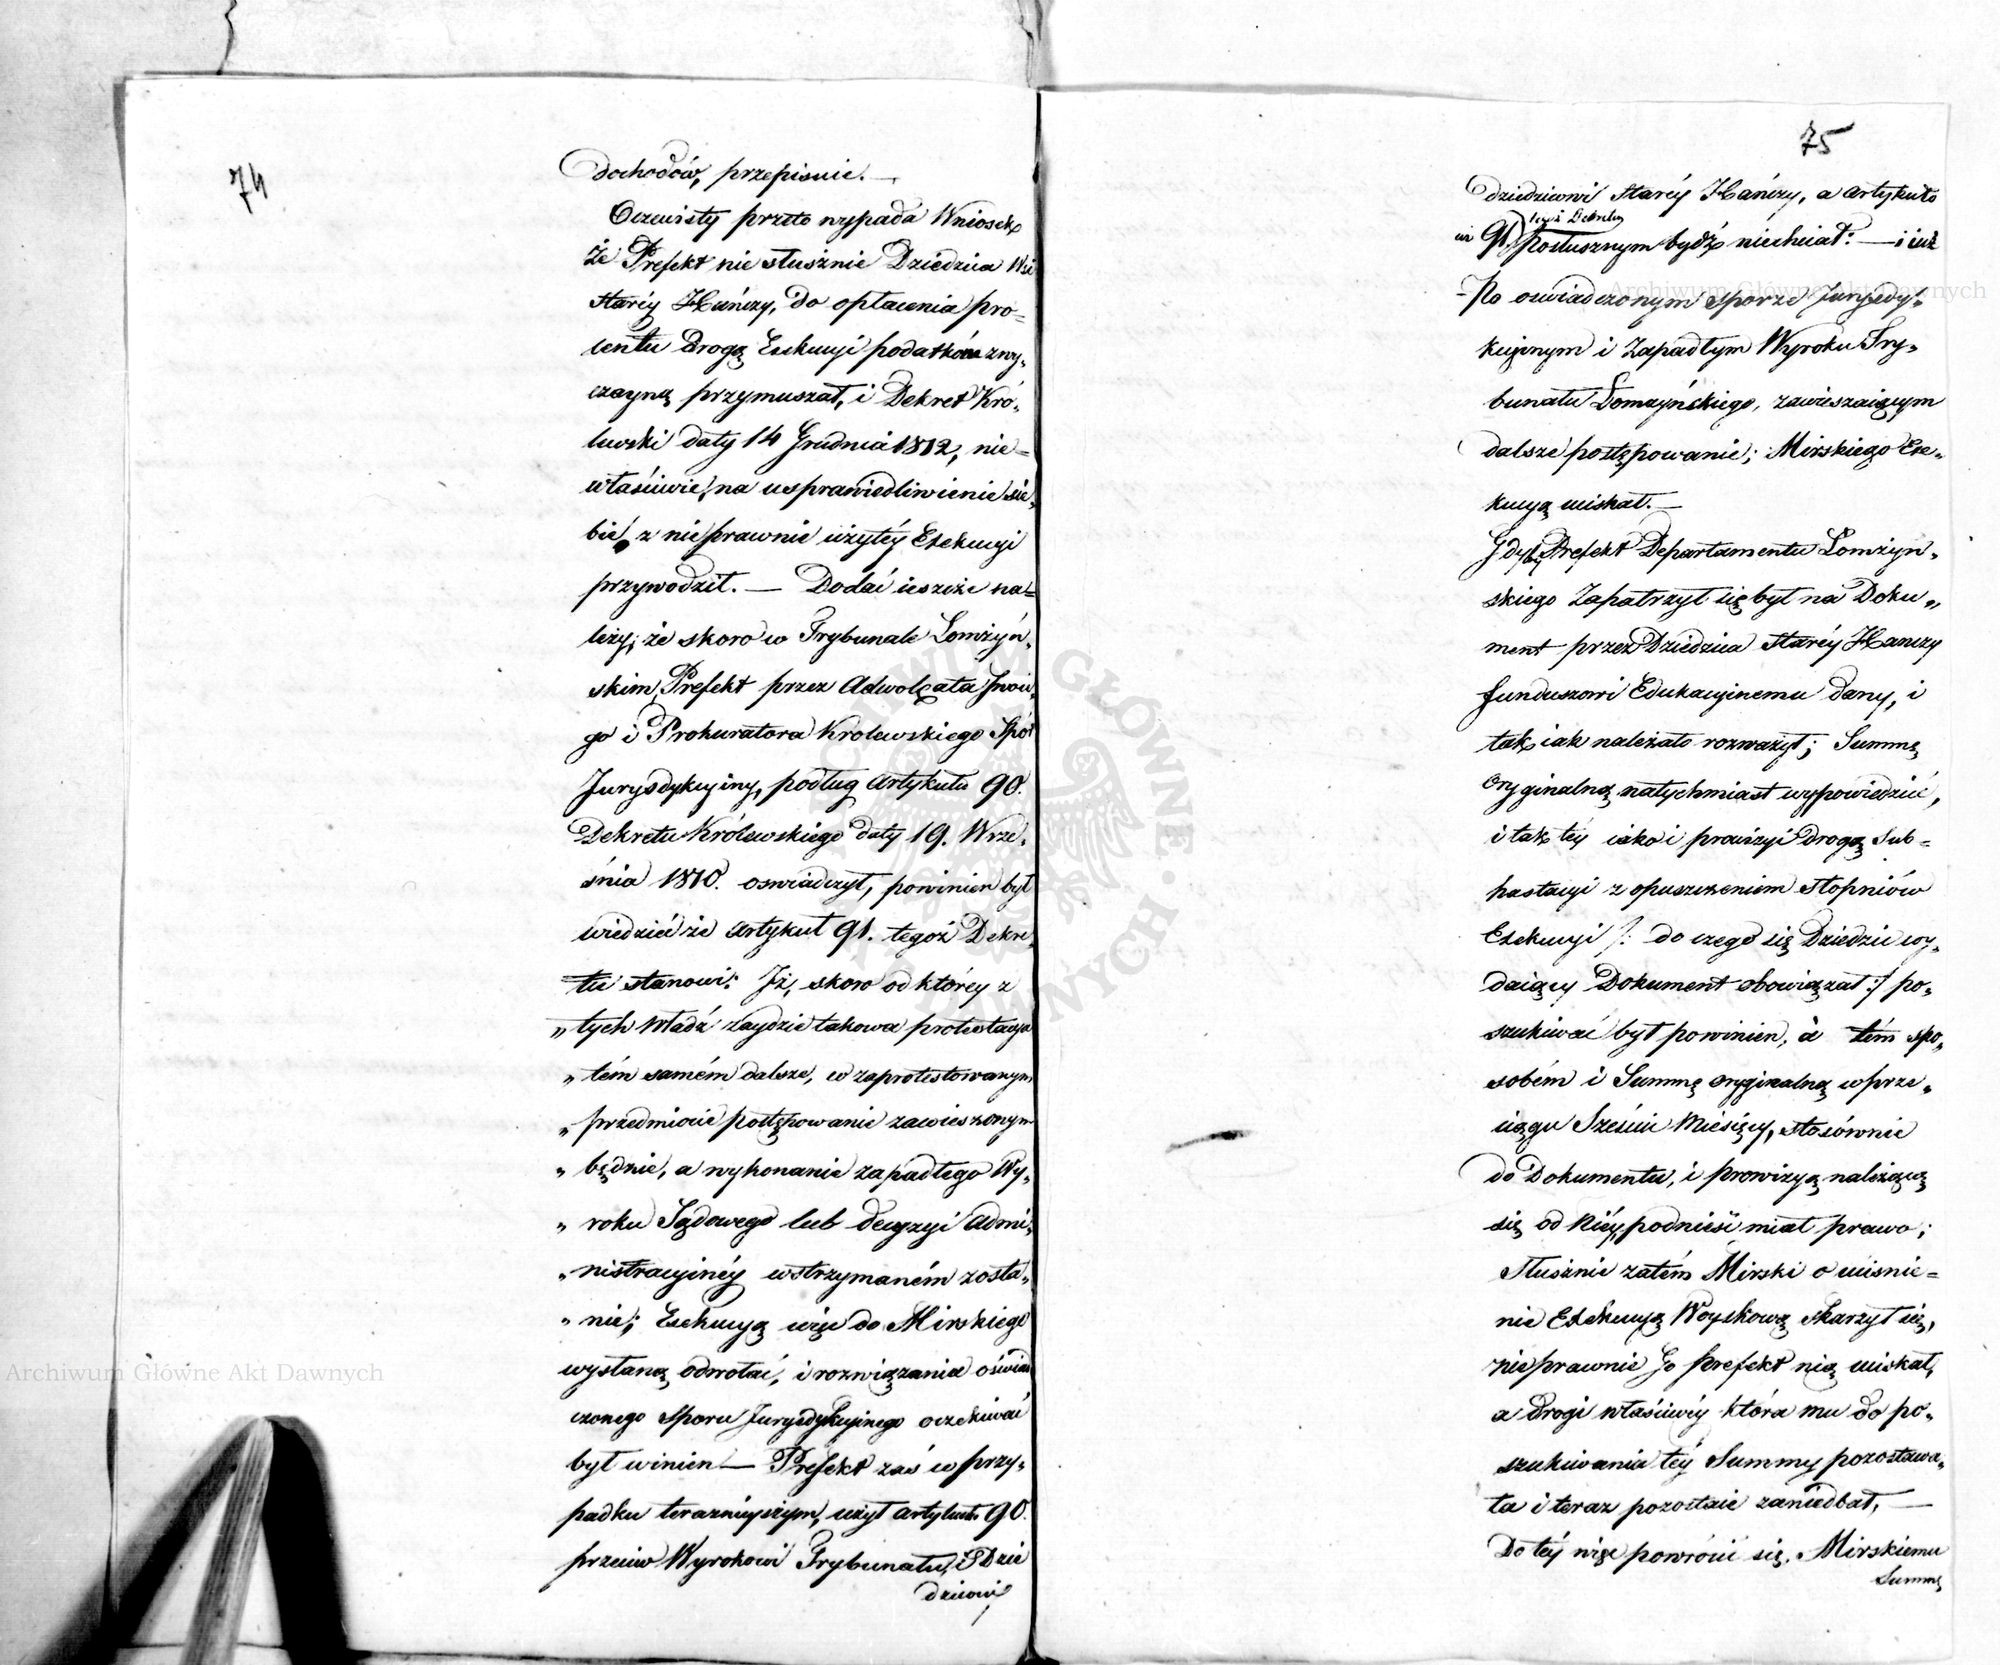 74
dochodów, przepisuie. —
Oczewisty przeto wypada Wniosek
że Prefekt nie słusznie Dziedzica Wsi
Staréy Hańczy, do opłacenia pro=
centu drogą Exekucyi podatków zwy„
czayną przymuszał, i Dekret Kró„
lewski daty 14 Grudnia 1812, nie=
właściwie, na usprawiedliwienie sie„
bie z nieprawnie użytéy Exekucyi
przywodził. — Dodać ieszcze na=
leży; że skoro w Trybunale Łomżyń„
skim, Prefekt przez Adwokata Swoie„
go i Prokuratora Królewskiego Spór
Jurysdykcyiny, podług Artykułu 90.
Dekretu Królewskiego daty 19. Wrze„
śnia 1810. oswiadczył, powinien był
wiedzieć że Artykuł 91. tegoż Dekre„
tu stanowi: Iż, skoro od którey z
„ tych Władz zaydzie takowa protestacya
„ tém samém dalsze, w zaprotestowanym
„ przedmiocie postępowanie zawieszonym
„ będzie, a wykonanie zapadłego Wy„
„ roku Sądowego lub decyzyi Admi„
„ nistracyinéy wstrzymaném zosta„
„ nie; Exekucyą więc do Mirskiego
wysłaną odwołać, i rozwiązania oświad
czonego Sporu Jurysdykcyinego oczekiwać
był winien — Prefekt zaś w przy„
padku teraznieyszym, użył Artykułu 90.
przeciw Wyrokowi Trybunału, i Dzie
dzicowi
75
dziedzicowi Staréy Hańczy, a Artykuło
tegoż Dekretu
wi 91. posłusznym bydź niechciał: — i iuż
Po oswiadczonym sporze Jurysdy„
kcyinym i Zapadłym Wyroku Try„
bunału Łomżyńskiego, zawieszaiącym
dalsze postępowanie; Mirskiego Exe„
kucyą uciskał. —
Gdyby Prefekt Departamentu Łomżyn„
skiego Zapatrzył się był na Doku„
ment przez Dziedzica Staréy Hanczy
funduszowi Edukacyinemu dany, i
tak iak należało rozważył; Summę
oryginalną natychmiast wypowiedzieć,
i tak téy iako i prowizyi drogą Sub=
hastacyi z opuszczeniem Stopniów
Exekucyi /: do czego się Dziedzic wy„
daiący Dokument obowiązał :/ po„
szukiwać był powinien, a tém spo„
sobém i Summę oryginalną w prze„
ciągu Sześciu Miesięcy, stosównie
do Dokumentu, i prowizyą należącą
się od Niéy, podnieść miał prawo;
Słusznie zatém Mirski o uciśnie=
nie Exekucyą Woyskową skarzył się,
nieprawnie Go Prefekt nią uciskał,
a drogi właściwéy która mu do po„
szukiwania téy Summy pozostawa„
ła i teraz pozostaie zaniedbał. —
Do téy więc powrócić się, Mirskiemu
Summę
Archiwum Główne Akt Dawnych
Archiwum Główne Akt Dawnych